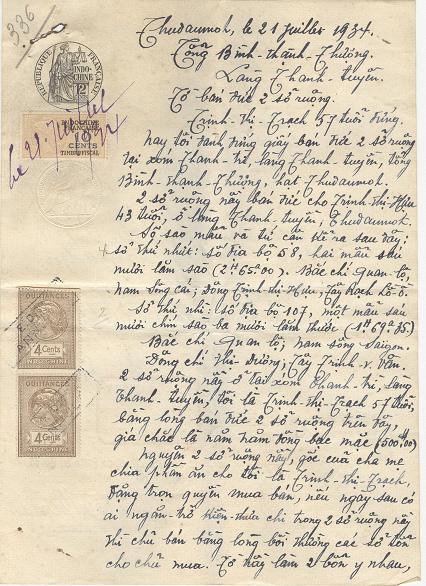 336
RÉPUBLIQUE FRANÇAISE
INDO-CHINE
INDOCHINE
FRANÇAISE
CENTS
TIMBRE FISCAL
Le 21 Juillet
1934
Thudaumot, le 21 juillet 1934.
Tổng Bình-thạnh-Thượng.
Làng Thanh-tuyền.
Tờ bán đức 2 sở ruộng.
Trịnh-thị-Trạch 57 tuổi đứng.
nay tôi đành đứng giấy bán đức 2 sở ruộng
tại xóm Thanh-trì, làng Thanh-tuyền, tổng
Bình-thạnh-Thượng, hạt Thudaumot.
2 sở ruộng nầy bán đức cho Trịnh-thị-Hựu
43 tuổi, ở làng Thanh-tuyền, Thudaumot.
Số sao mẫu và tứ cận kể ra sau đây;
số thứ nhứt: số địa bộ 58, hai mẫu sáu
mươi lăm sào (2H65a00). Bắc chỉ Quan-lộ,
nam Sông cái; Đông Trịnh-thị-Hựu, Tây Rạch
Số thứ nhì: số địa bộ 107, một mẫu sáu
mươi chín sào ba mươi lăm thước (1H69a35)
Bắc chỉ Quan lộ; nam sông Saigon.
Đông chỉ Thị-Dưỡng; Tây Trịnh-v-Văn.
2 sở ruộng nầy ở tại xóm Thanh-trì, làng
Thanh-tuyền, tôi là Trịnh-thị-Trạch 57 tuổi,
bằng lòng bán đức 2 sở ruộng trên đây,
giá chắc là năm trăm đồng bạc mặc (500$00)
nguyên 2 sở ruộng nầy, gốc của cha mẹ
chia phần ăn cho tôi là Trịnh-thị-Trạch,
đặng trọn quyền mua bán, nếu ngày sau có
ai ngăn-trở kiện-thưa chi trong 2 sở ruộng nầy
thì chủ bán bằng lòng bồi thường các sở tổn
cho chủ mua. Tờ nầy làm 2 bổn y nhau,
QUITTANCES
4 Cents
INDO-CHINE
QUITTANCES
4 Cents
INDO-CHINE